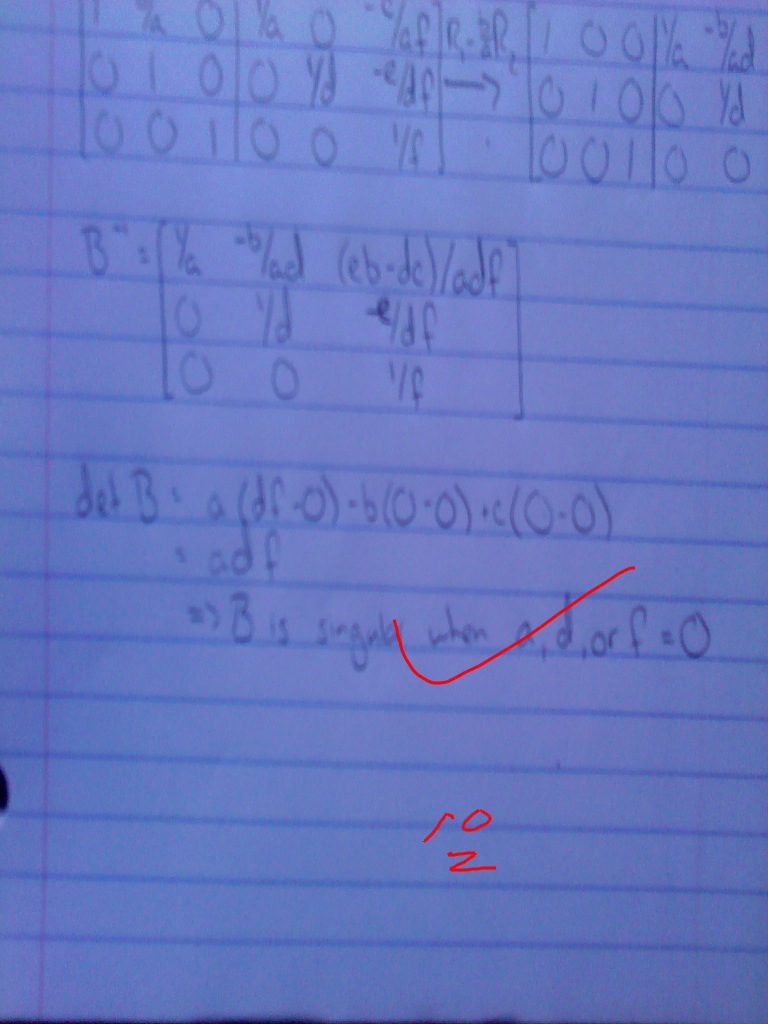 1 b/a 0 | 1/a 0 -c/af R₁-b/aR₂ 1 0 0 | 1/a -b/ad
0 1 0 | 0 1/d -e/df → 0 1 0 | 0 1/d
0 0 1 | 0 0 1/f 0 0 1 | 0 0
B⁻¹ = 1/a -b/ad (eb-dc)/adf
0 1/d -e/df
0 0 1/f
det B = a(df-0)-b(0-0)+c(0-0)
= adf
=> B is singular when a, d, or f = 0
10
2